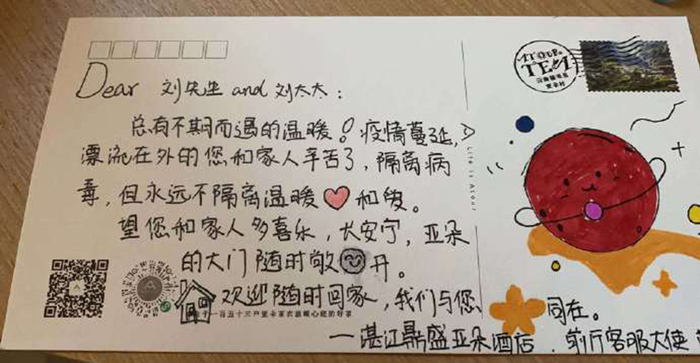 Dear 刘先生 and 刘太太：
总有不期而遇的温暖！疫情蔓延，
漂流在外的您和家人辛苦了，隔离病
毒，但永远不隔离温暖和爱。
望您和家人多喜乐，长安宁，亚朵
的大门随时敞开。
欢迎随时回家，我们与您同在。
一百五十三户
——湛江鼎盛亚朵酒店
TEA